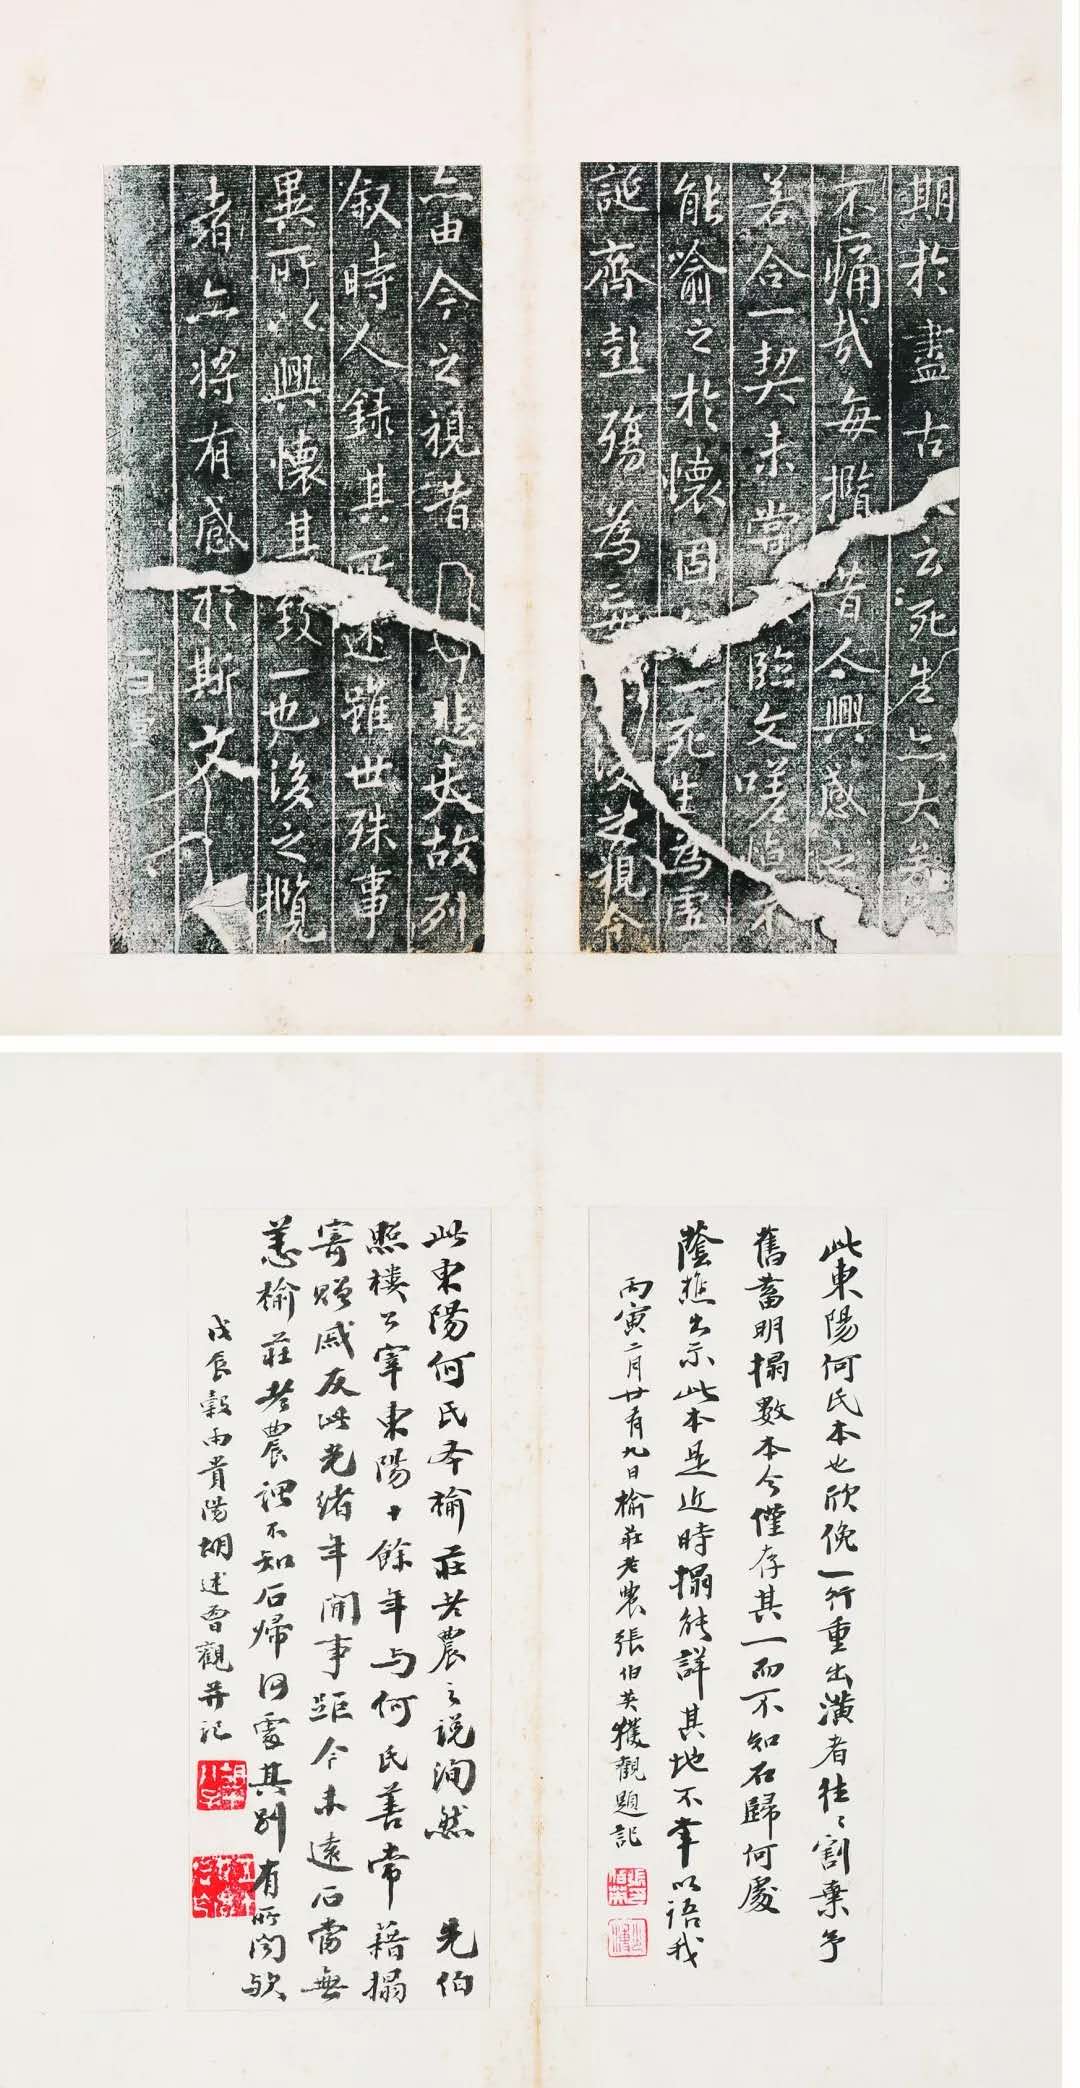 期於盡古人云死生亦大矣豈
不痛哉每攬昔人興感之
若合一契未嘗不臨文嗟悼不
能喻之於懷固知一死生為虛
誕齊彭殤為妄作後之視今
亦由今之視昔悲夫故列
叙時人錄其所述雖世殊事
異所以興懷其致一也後之攬
者亦將有感於斯文
此東陽何氏本也欣俛一行重出潢者往往割棄予
舊蓄明搨數本今僅存其一而不知石歸何處
蔭樵出示此本是近時搨能詳其地不幸以語我
丙寅二月廿有九日榆莊老農張伯英獲觀題記
此東陽何氏本榆莊老農之說洵然 先伯
照樓公宰東陽十餘年与何氏善常藉搨
寄贈戚友此光緒年間事距今未遠石當無
恙榆莊老農謂不知石歸何處其別有所聞歟
戊辰穀雨貴陽胡述曾觀并記